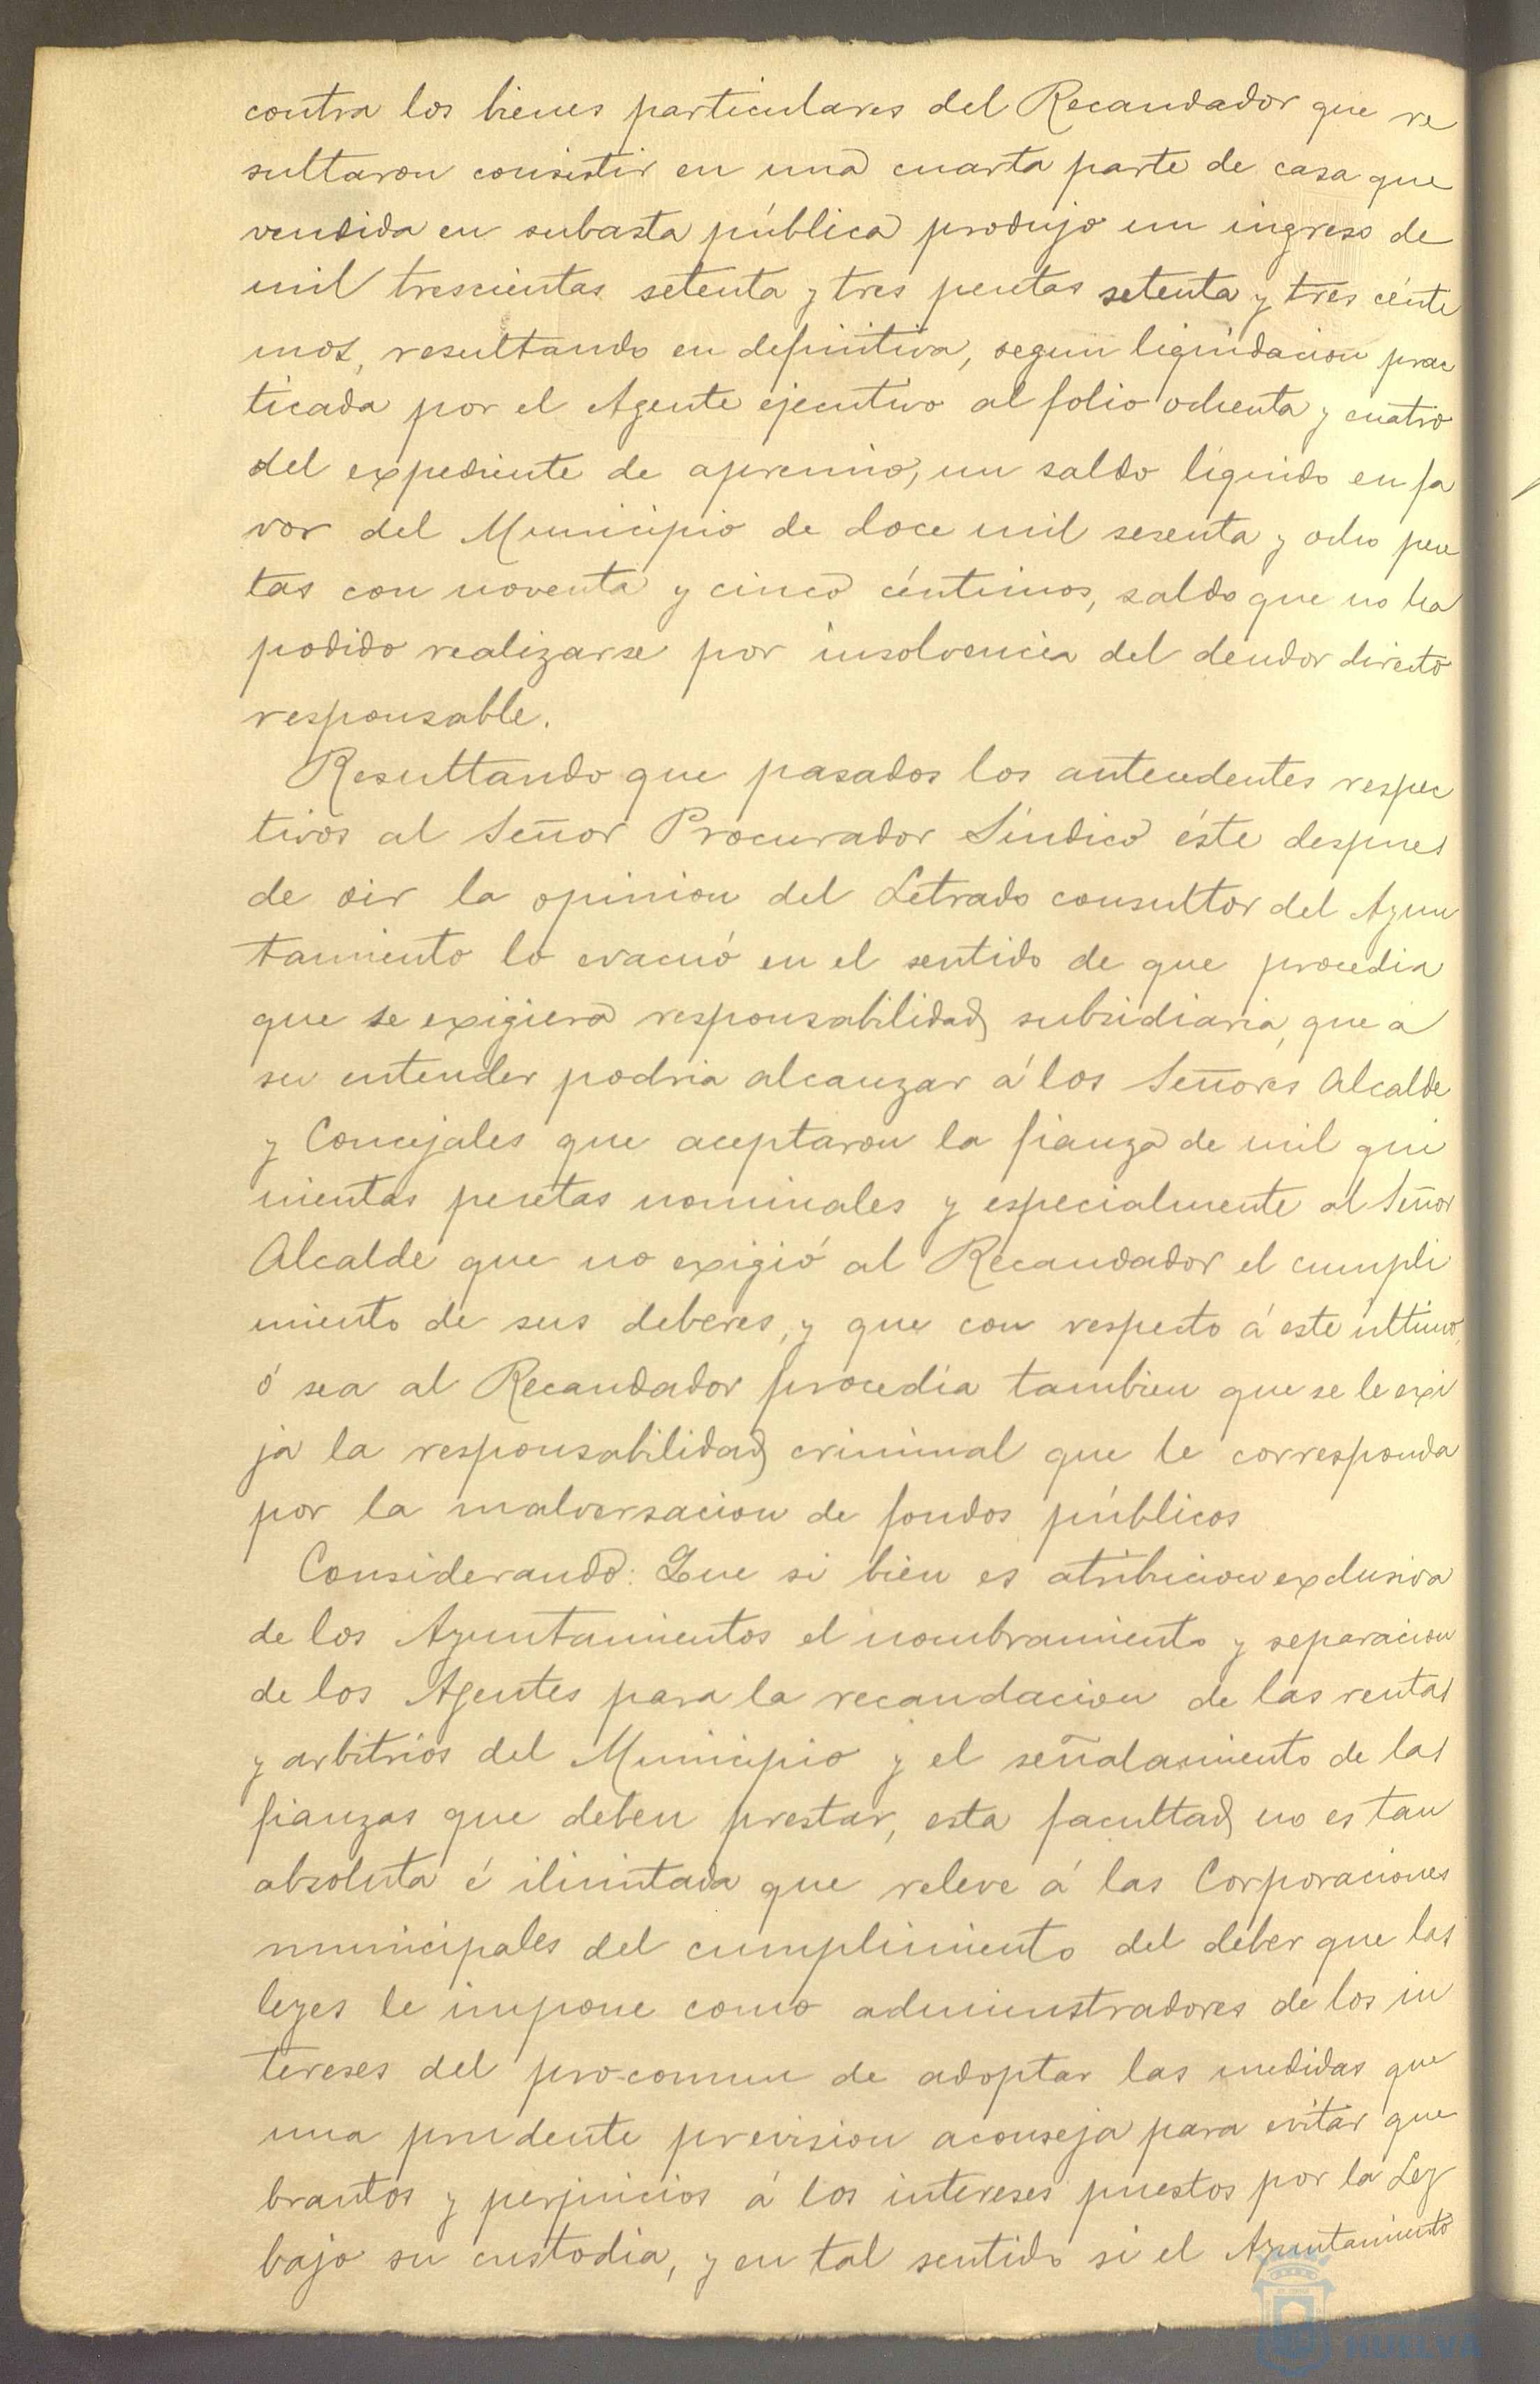 contra los bienes particulares del Recaudador que re
sultaron consistir en una cuarta parte de casa que
vendida en subasta pública produjo un ingreso de
mil trescientas setenta y tres pesetas setenta y tres cénti
mos, resultando en definitiva, segun liquidacion prac
ticada por el Agente ejecutivo al folio ochenta y cuatro
del expediente de apremio, un saldo líquido en fa
vor del Municipio de doce mil sesenta y ocho pese
tas con noventa y cinco céntimos, saldo que no ha
podido realizarse por insolvencia del deudor directo
responsable.
Resultando que pasados los antecedentes respec
tivos al Señor Procurador Síndico éste despues
de oir la opinion del Letrado consultor del Ayun
tamiento lo evacuó en el sentido de que procedia
que se exigiera responsabilidad subsidiaria, que a
su entender podria alcanzar á los Señores Alcalde
y Concejales que aceptaron la fianza de mil qui
nientas pesetas nominales y especialmente al Señor
Alcalde que no exigió al Recaudador el cumpli
miento de sus deberes, y que con respecto á este último,
ó sea al Recaudador procedia tambien que se le exi
ja la responsabilidad criminal que le corresponda
por la malversacion de fondos públicos
Considerando: Que si bien es atribucion exclusiva
de los Ayuntamientos el nombramiento y separacion
de los Agentes para la recaudacion de las rentas
y arbitrios del Municipio y el señalamiento de las
fianzas que deben prestar, esta facultad no es tan
absoluta é ilimitada que releve á las Corporaciones
municipales del cumplimiento del deber que las
leyes le impone como administradores de los in
tereses del pro-comun de adoptar las medidas que
una prudente prevision aconseja para evitar que
brantos y perjuicios á los intereses puestos por la Ley
bajo su custodia, y en tal sentido si el Ayuntamiento
HUELVA